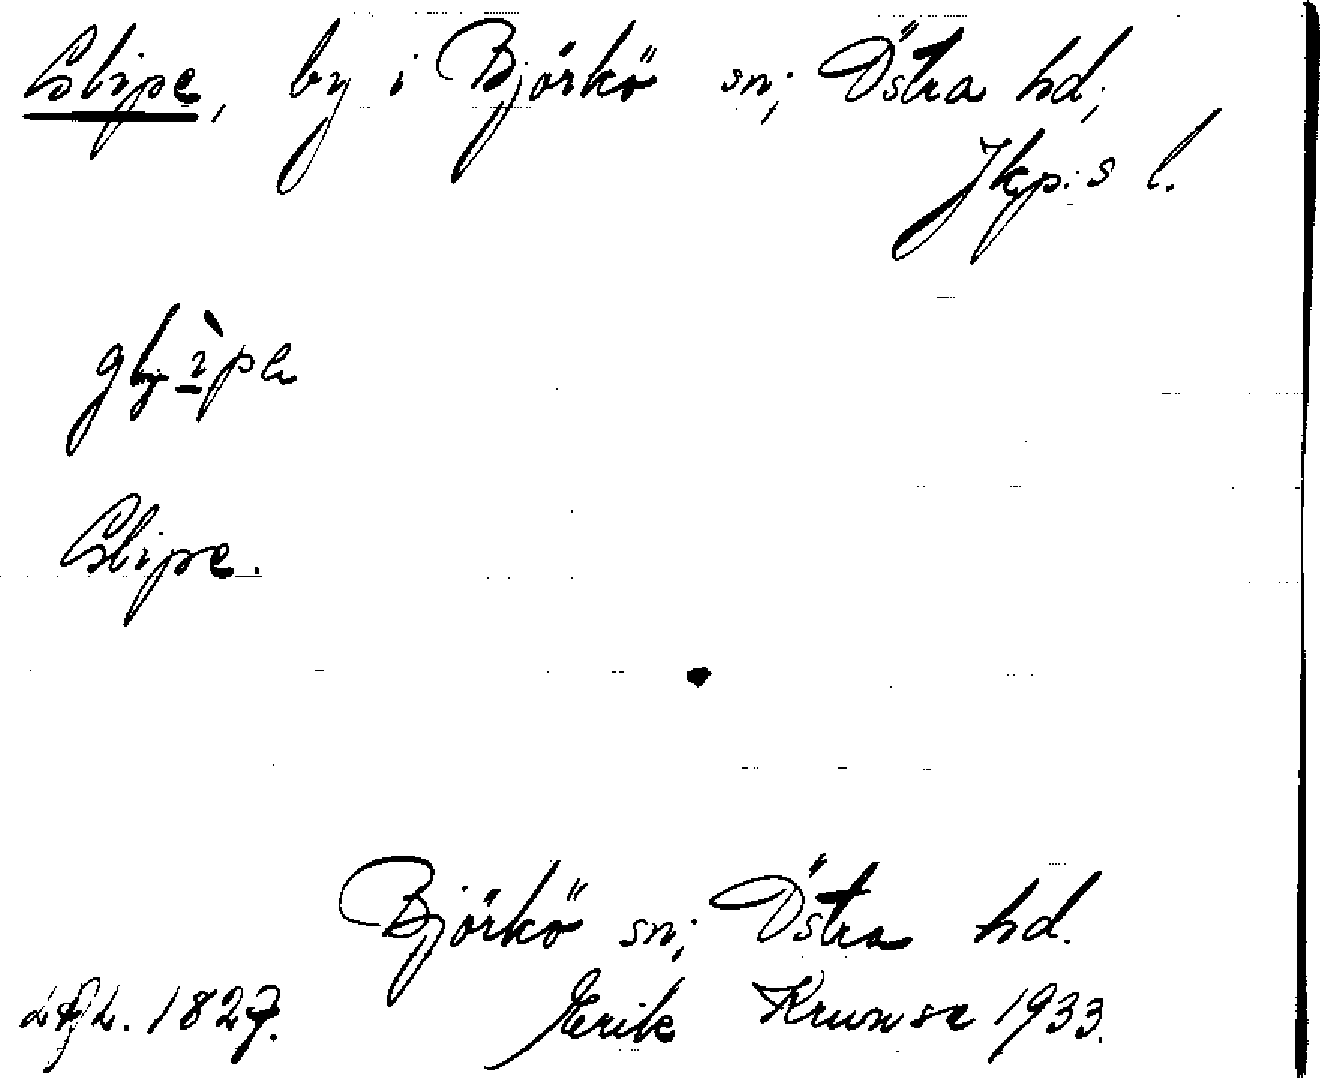 Slipe, by i Björkö sn; Östra hd;
Jkp:s l.
Slipe.
Björkö sn; Östra hd.
1827. Erik Krunse 1933.